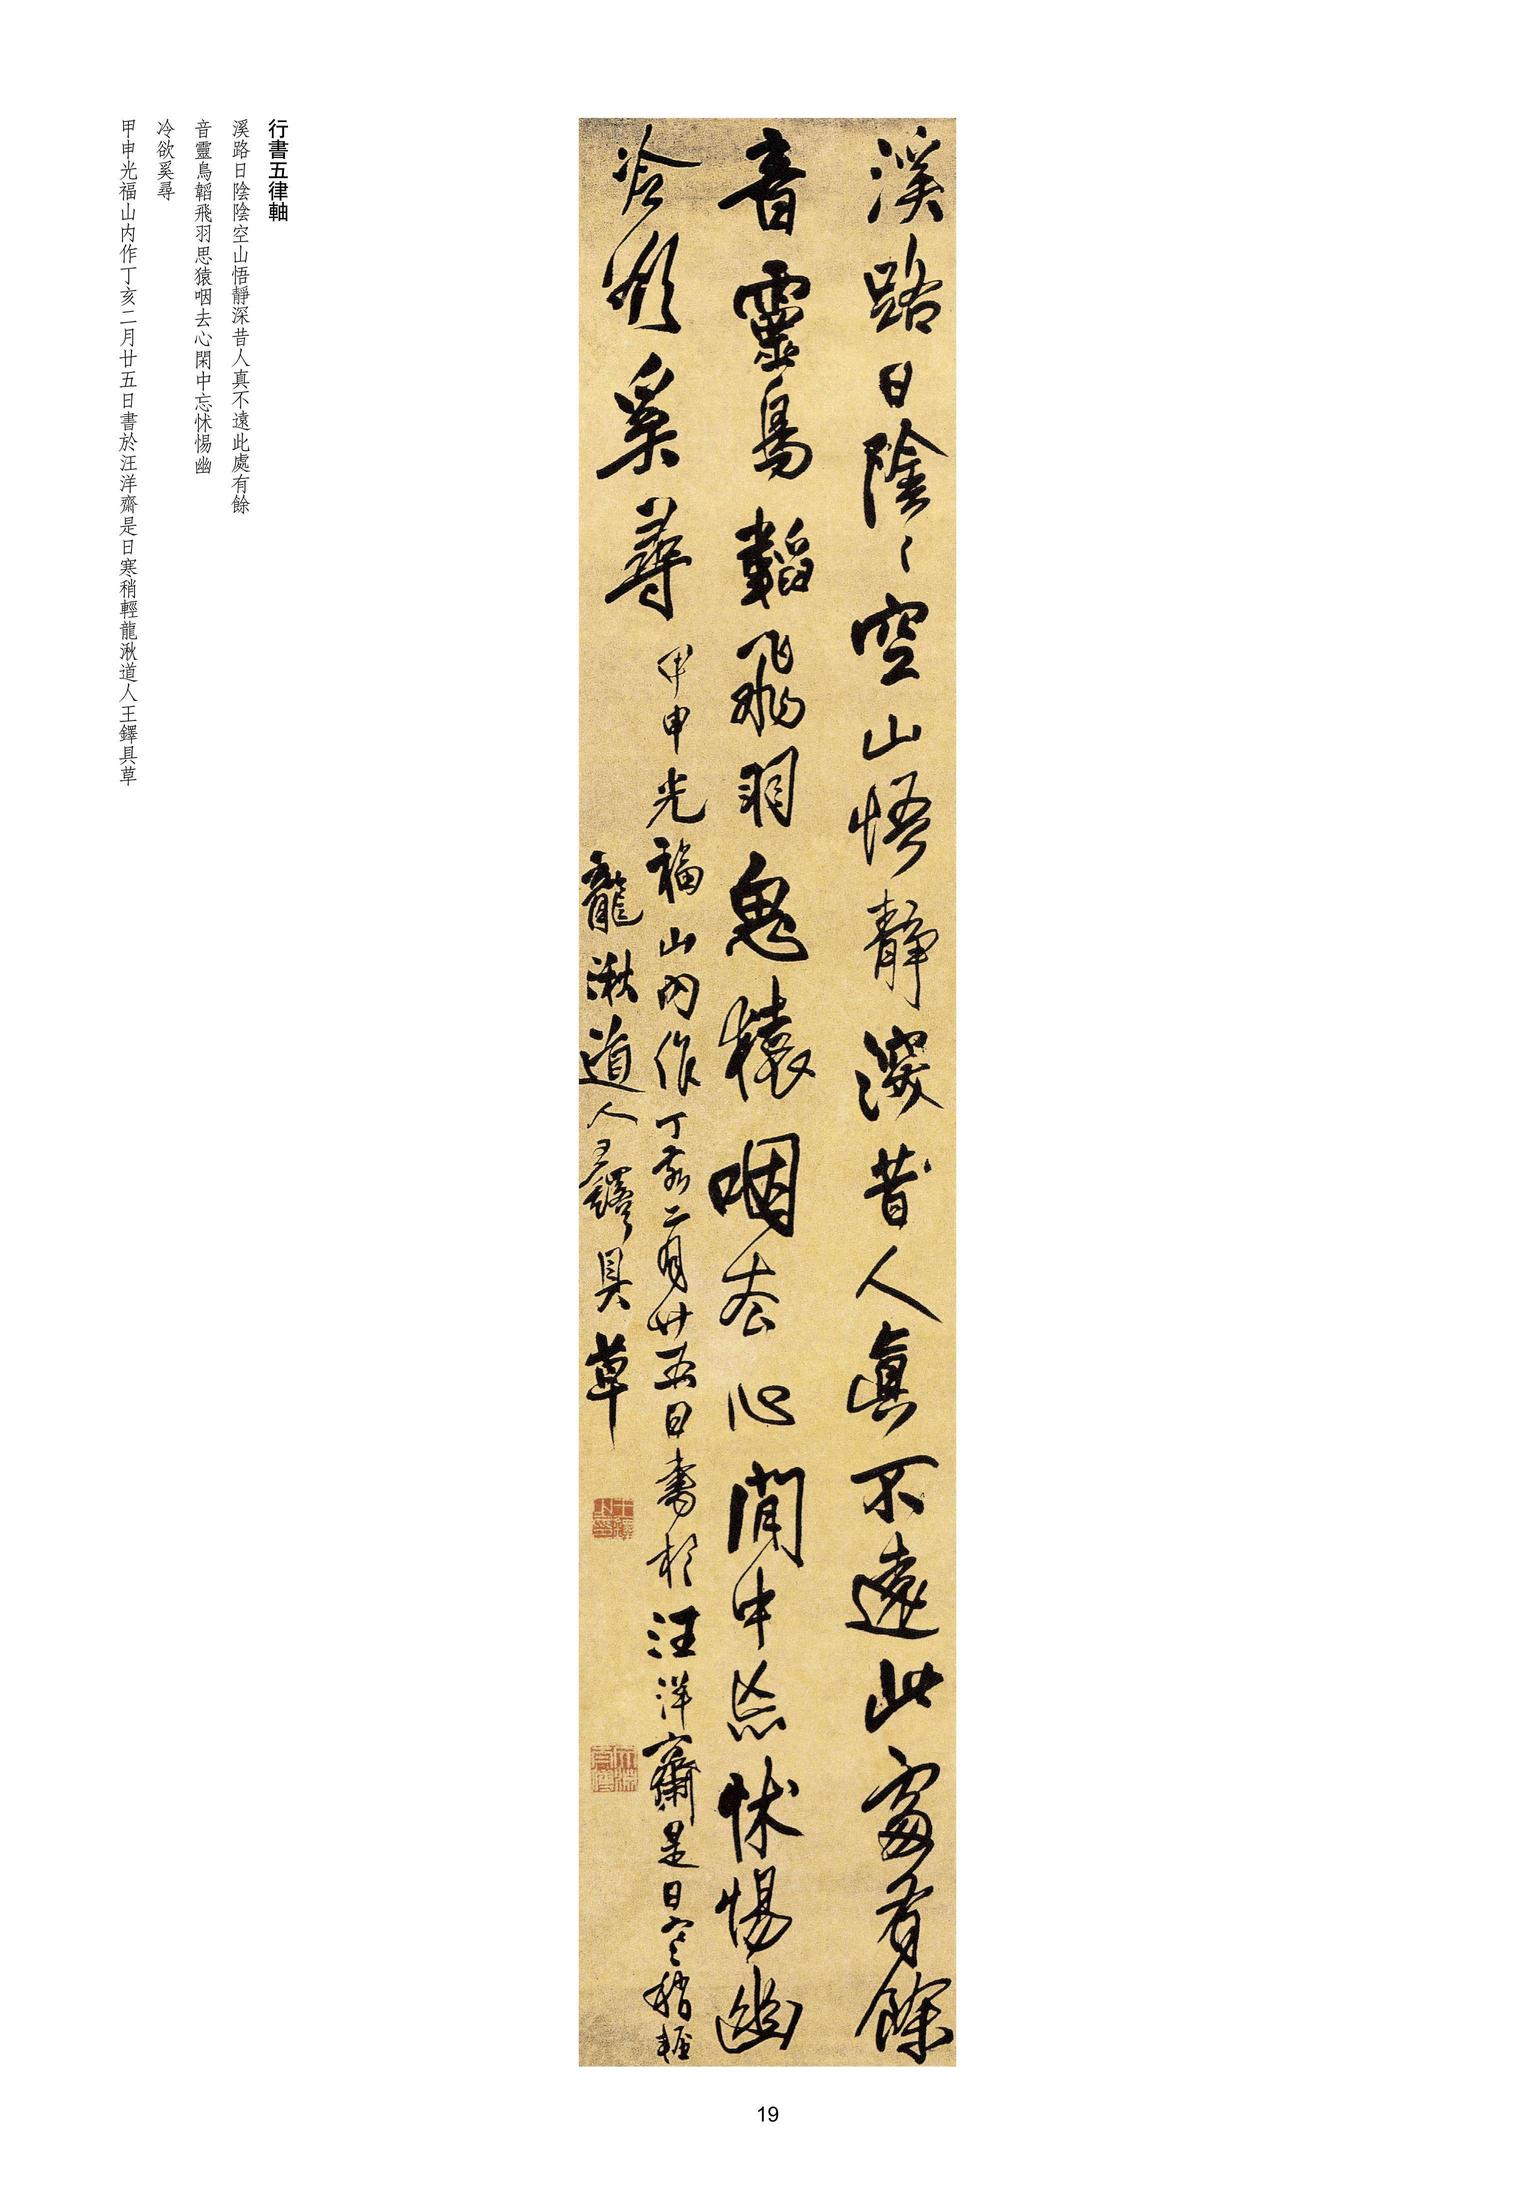 溪路日陰〻空山悟靜深昔人真不遠此處有餘
音靈鳥韜飛羽鬼猿咽去心閒中忘怵惕幽
冷欲奚尋甲申光福山內作丁亥二月廿五日書於汪洋齋是日寒稍輕
龍湫道人王鐸具草
行書五律軸
溪路日陰陰空山悟靜深昔人真不遠此處有餘
音靈鳥韜飛羽思猿咽去心閑中忘怵惕幽
冷欲奚尋
甲申光福山内作丁亥二月廿五日書於汪洋齋是日寒稍輕龍湫道人王鐸具草
19